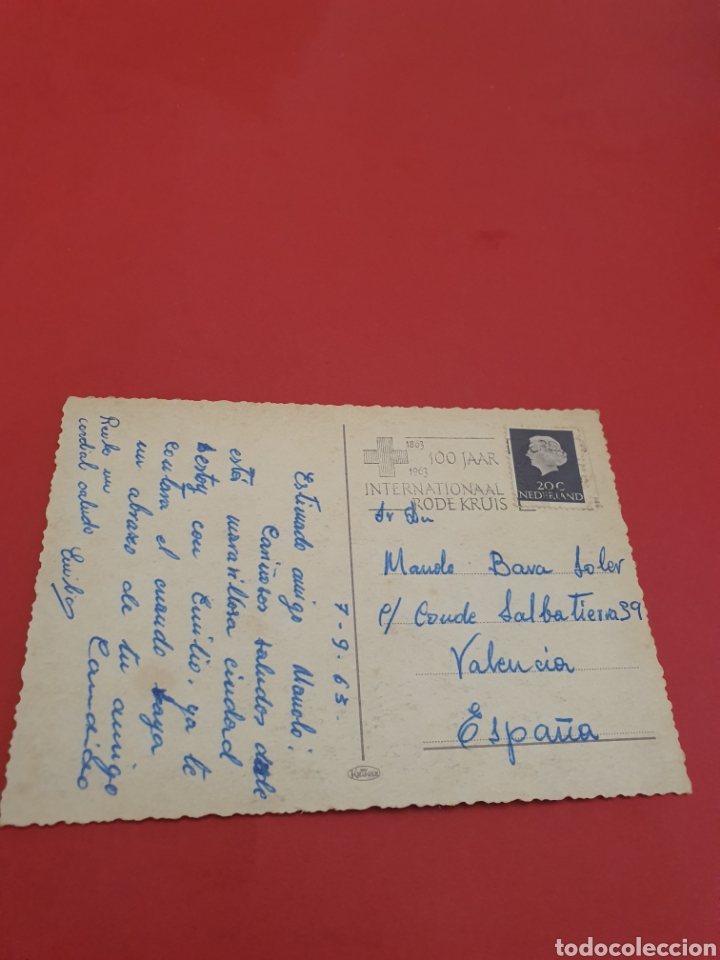 7-9-63-
Estimado amigo Manolo:
Cariñosos saludos desde
esta maravillosa ciudad
estoy con Emilio, ya te
contara el cuando vaya
un abrazo de tu amigo
Candido
Recibe un
cordial saludo Emilio
1863
1963
100 JAAR
INTERNATIONAAL
RODE KRUIS
20 C
NEDERLAND
Sr Dn
Manolo Bava Soler
c/ Conde Salbatierra 39
Valencia
España
todocoleccion